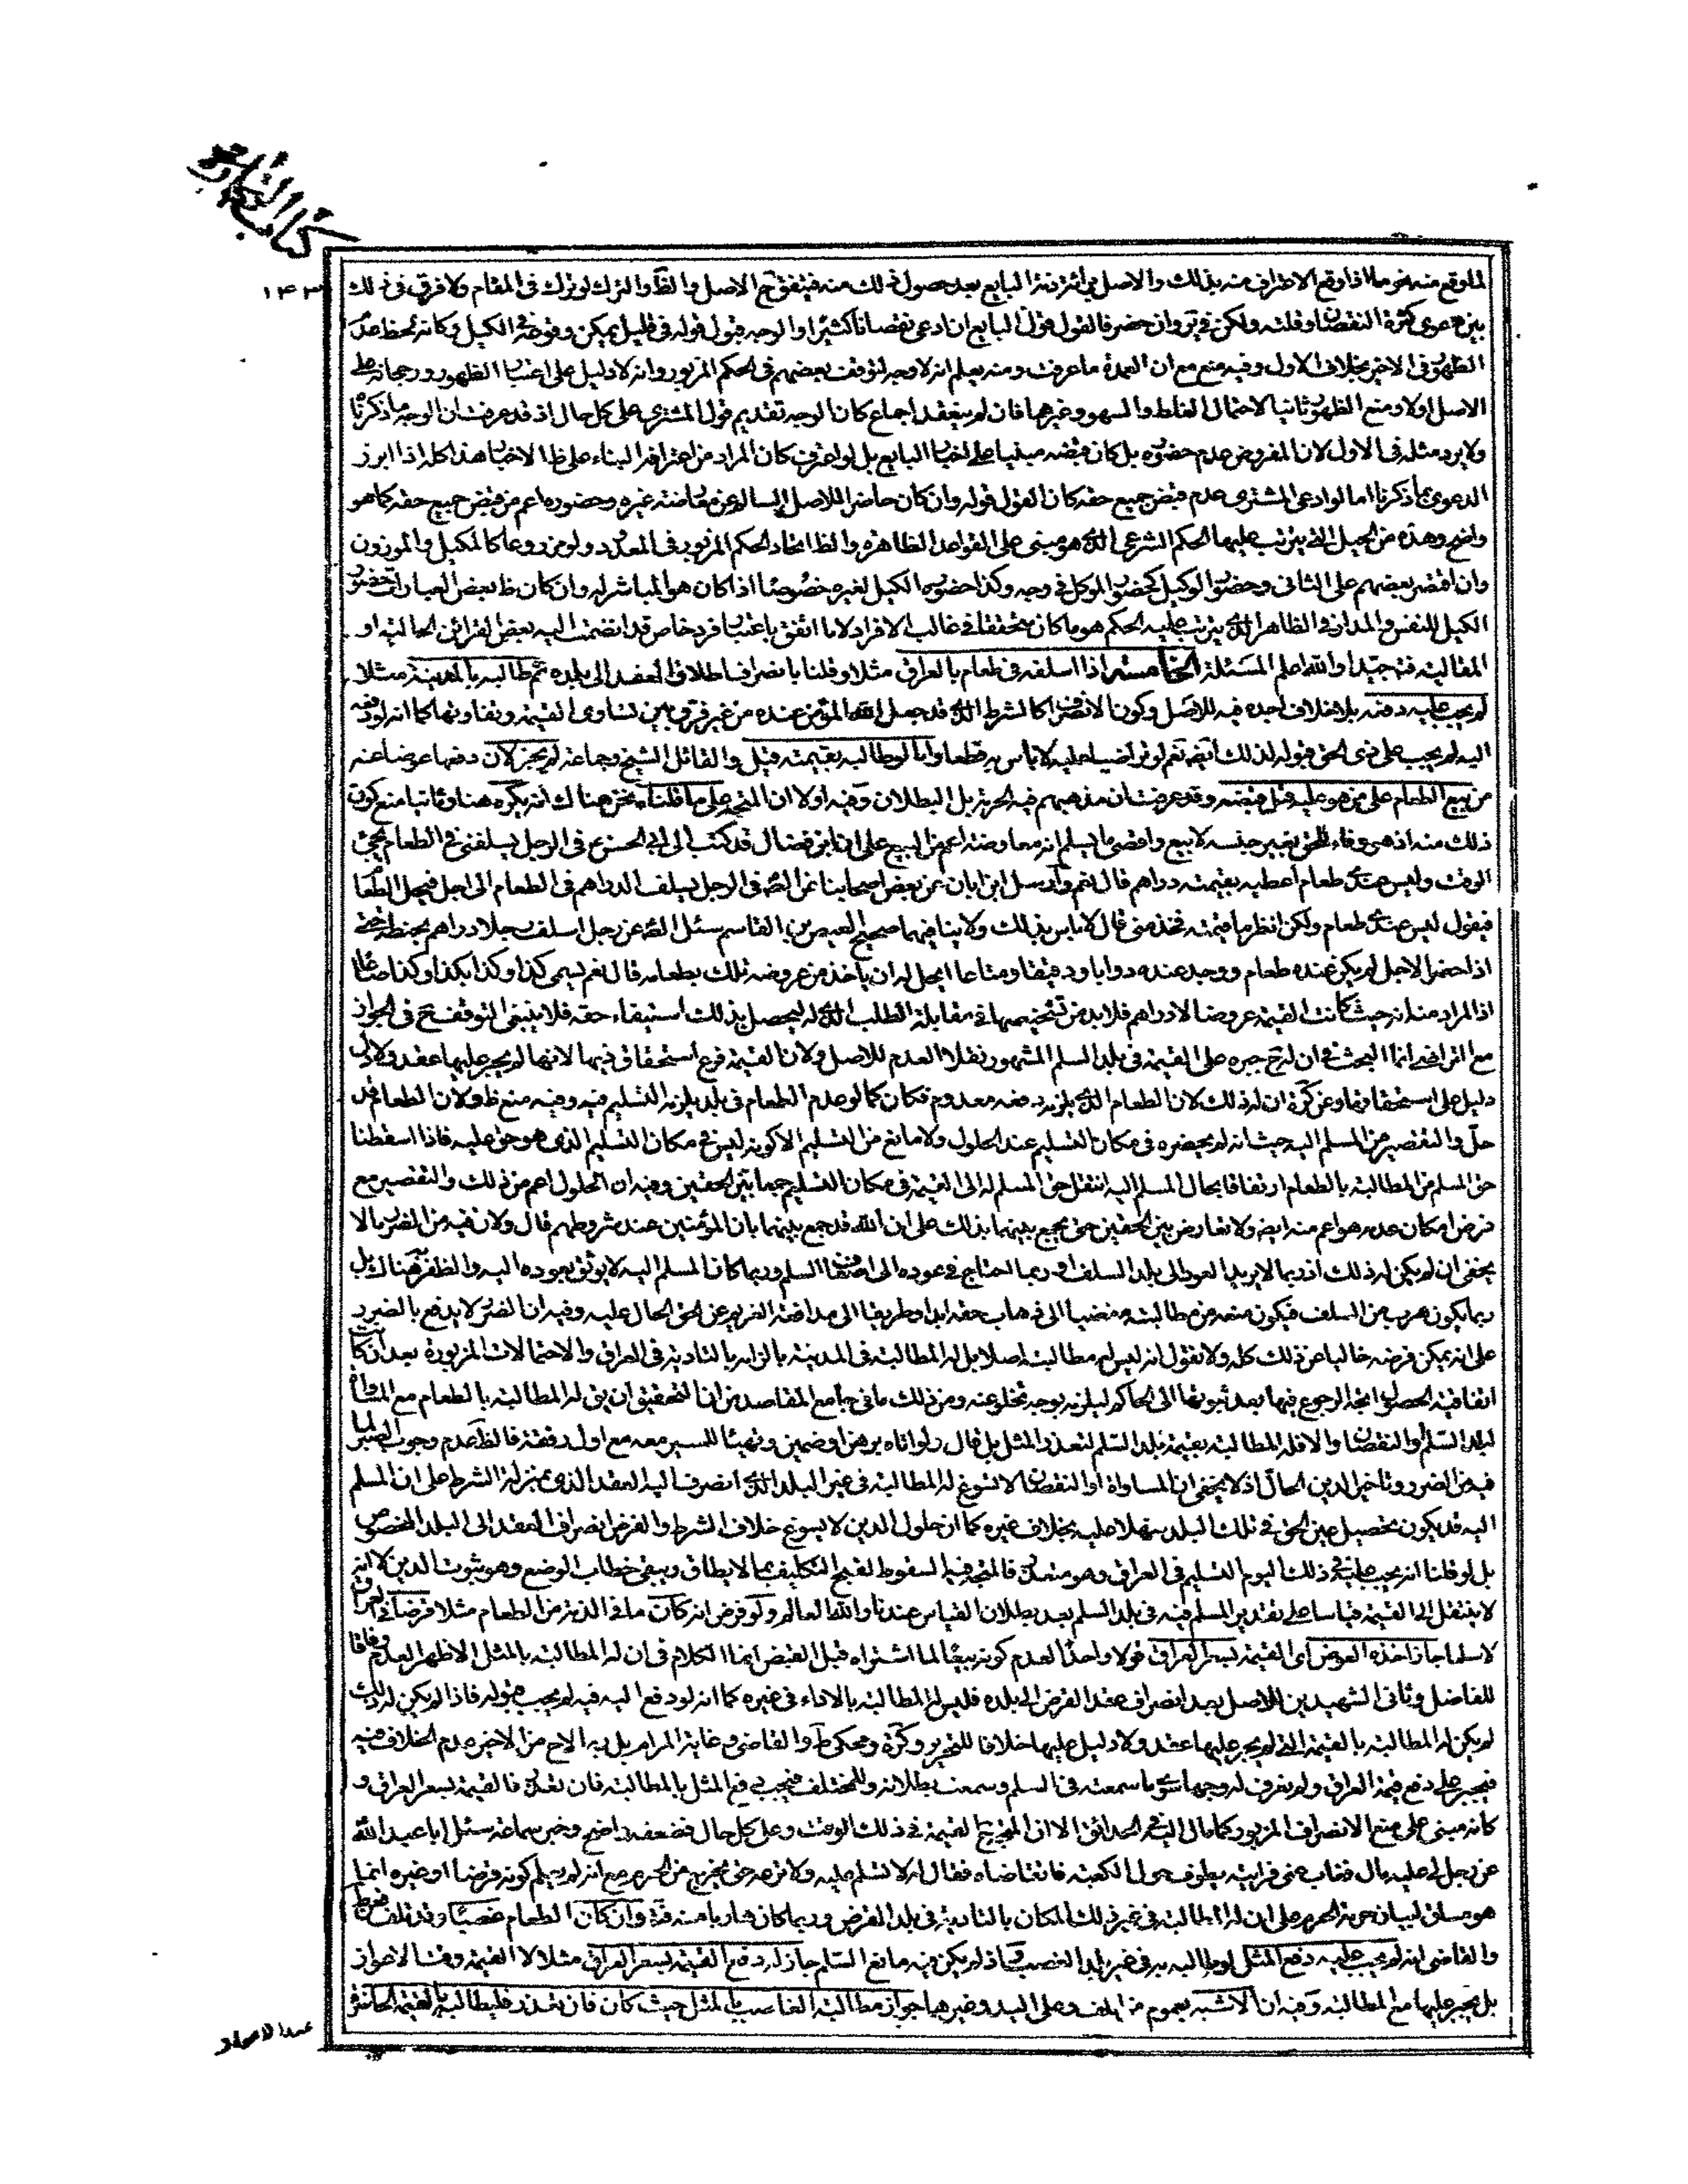 كتاب التجارة
١٤٣
لما وقع منه نحو ما اذا وقع الاعتراف منه بذلك والاصل برائة ذمة البايع بعد حصول ذلك منه فيتفق ح الاصل والظ والترك لو ترك فى المقام ولا فرق فى ذلك
بين دعوى كثرة النقصان وقلته ولكن فى وان حضر فالقول قول البايع ان ادعى نقصانا كثيرا والوجه قبول قوله فى قليل يمكن وقوعه فى الكيل وكانه لحظ عدم
الظهور فى الاخير بخلاف الاول وفيه منع مع ان العمدة ما عرفت ومنه يعلم انه لا وجه لتوقف بعضهم فى الحكم المزبور وانه لا دليل على اعتبار الظهور ورجحانه على
الاصل اولا ومنع الظهور ثانيا لاحتمال الغلط والسهو وغيرهما فان لم ينعقد اجماع كان الوجه تقديم قول المشترى على كل حال اذ قد عرفت ان الوجه ما ذكرنا
ولا يرد مثله فى الاول لان المفروض عدم حضوره بل كان قبضه مبنيا على اخبار البايع بل لو اعترف كان المراد من اعترافه البناء على ظ الاخبار هذا كله اذا ابرز
الدعوى بما ذكرنا اما لو ادعى المشترى عدم قبض جميع حقه كان القول قوله وان كان حاضرا للاصل السالم عن معارضة غيره وحضوره اعم من قبض جميع حقه كما هو
واضح وهذه من الحيل التى يترتب عليها الحكم الشرعى الذى هو مبنى على القواعد الظاهرة والظ اتحاد الحكم المزبور فى المعدود ولو مزروعا كالمكيل والموزون
وان اقتصر بعضهم على الثانى وحضور الوكيل كحضور الموكل فى وجه وكذا حضوره الكيل لغيره خصوصا اذا كان هو المباشر له وان كان ظ بعض العبارات حضور
الكيل للنفس والمدار فى الظاهر الذى يترتب عليه الحكم هو ما كان متحققا فى غالب الافراد لا ما اتفق باعتبار فرد خاص قد انضمت اليه بعض القرائن الحالية او
المقالية فتدبر جيدا والله اعلم المسئلة الخامسة اذا اسلفه فى طعام بالعراق مثلا وقلنا بانصراف اطلاق العقد الى بلده ثم طالبه بالمدينة مثلا
لم يجب عليه دفعه بلا خلاف اجده فيه للاصل وكون الانصراف كالشرط الذى قد جعل الله المؤمن عنده من غير فرق بين تساوى القيمة وتفاوتها كما انه لو دفعه
اليه لم يجب على ذى الحق قبوله لذلك ايضا نعم لو تراضيا عليه لا باس به قطعا واما لو طالبه بقيمته قيل والقائل الشيخ وجماعة لم يجز لان دفعها عوضا عنه
من بيع الطعام على من هو عليه قبل قبضه وقد عرفت ان مذهبهم فيه الحرمة بل البطلان وفيه اولا ان المتجه على ما قلناه نحن هناك انه يكره هنا وثانيا منع كون
ذلك منه اذ هو وفاء للحق بغير جنسه لا بيع واقصى ما يسلم انه معاوضة اعم من البيع على ان ابن فضال قد كتب الى ابى الحسن ع فى الرجل يسلفنى فى الطعام يجئ
الوقت وليس عندى طعام اعطيه بقيمته دراهم قال نعم وارسل ابن ابان عن بعض اصحابنا عن الص فى الرجل يسلف الدراهم فى الطعام الى اجل فيحل الطعام
فيقول ليس عندى طعام ولكن انظر ما قيمته فخذ منى قال لا باس بذلك ولا ينافيهما صحيح العيص بن القاسم سئل الص عن رجل اسلف رجلا دراهم بحنطة حتى
اذا حضر الاجل لم يكن عنده طعام ووجد عنده دوابا ودقيقا ومتاعا ايحل له ان ياخذ من عروضه تلك بطعامه قال نعم يسمى كذا وكذا بكذا وكذا صاعا
اذ المراد منه انه حيث كانت القيمة عروضا لا دراهم فلا بد من تشخيصها فى مقابلة الطلب الذى له ليحصل بذلك استيفاء حقه فلا ينبغى التوقف ح فى الجواز
مع التراضى انما البحث فى ان له ح جبره على القيمة فى بلد السلم المشهور نقلا العدم للاصل ولان القيمة فرع استحقاق فيها لانها لم يجر عليها عقد ولا دل
دليل على استحقاقها وعن كرة ان له ذلك لان الطعام الذى يلزمه دفعه معدوم فكان كما لو عدم الطعام فى بلد يلزمه التسليم فيه وفيه منع ظ ولان الطعام قد
حل والتقصير من المسلم اليه حيث انه لم يحضره فى مكان التسليم عند الحلول ولا مانع من التسليم الا كونه ليس فى مكان التسليم الذى هو حق عليه فاذا اسقطنا
حق المسلم من المطالبة بالطعام ارتفاقا بحال المسلم اليه انتقل حق المسلم له الى القيمة فى مكان التسليم جمعا بين الحقين وفيه ان الحلول اعم من ذلك والتقصير مع
فرض امكان عدمه هو اعم منه ايضا ولا تعارض بين الحقين حتى يجمع بينهما بذلك على ان الله قد جمع بينهما بان المؤمنين عند شروطهم قال ولان فيه من الضرر ما لا
يخفى ان لم يكن له ذلك اذ ربما لا يريد العود الى بلد السلف او ربما احتاج فى عوده الى اضعاف السلم وربما كان المسلم اليه لا يوثق بعوده اليه والظفر به هناك بل
ربما يكون هرب من السلف فيكون منعه من مطالبته مفضيا الى ذهاب حقه ابدا وطريقا الى مدافعة الغريم عن الحق الحال عليه وفيه ان الضرر لا يدفع بالضرر
على انه يمكن فرضه خاليا عن ذلك كله ولا نقول انه ليس له مطالبته اصلا بل له المطالبة فى المدينة بالزامه بالتادية فى العراق والاحتمالات المزبورة بعد ان كانت
اتفاقية الحصول اتجه الرجوع فيها بعد ثبوتها الى الحاكم ليلزمه بوجه تخلو عنه ومن ذلك ما فى جامع المقاصد من ان التحقيق ان يق له المطالبة بالطعام مع المساواة
لبلد السلم او النقصان والا فله المطالبة بقيمة بلد السلم لتعذر المثل بل قال ولو اتاه برهن او ضمين وتهيئا للسير معه مع اول رفقة فالظ عدم وجوب الصبر لما
فيه من الضرر وتاخير الدين الحال اذ لا يخفى ان المساواة او النقصان لا تسوغ له المطالبة فى غير البلد الذى انصرف اليه العقد الذى بمنزلة الشرط على ان المسلم
اليه قد يكون تحصيل عين الحق فى تلك البلد سهلا عليه بخلاف غيره كما ان حلول الدين لا يسوغ خلاف الشرط والفرض انصراف العقد الى البلد المخصوص
بل لو قلنا انه يجب عليه فى ذلك اليوم التسليم فى العراق وهو متعذر فالمتجه فيه السقوط لقبح التكليف بما لا يطاق ويبقى خطاب الوضع وهو ثبوت الدين لا انه
لا ينتقل الى القيمة قياسا على تقدير المسلم فيه فى بلد السلم بعد بطلان القياس عندنا والله العالم ولو فرض انه كان ما فى الذمة من الطعام مثلا قرضا فى العراق
لا سلما جاز اخذه العوض اى القيمة بسعر العراق قولا واحدا لعدم كونه بيعا لما اشتراه قبل القبض انما الكلام فى ان له المطالبة بالمثل الاظهر العدم وفاقا
للفاضل وثانى الشهيدين للاصل بعد انصراف عقد القرض الى بلده فليس له المطالبة بالاداء فى غيره كما انه لو دفع اليه فيه لم يجب قبوله فاذا لم يكن له ذلك
لم يكن له المطالبة بالقيمة التى لم يجر عليها عقد ولا دليل عليها خلافا للتحرير وكرة ومحكى ط والقاضى وغاية المرام بل به الاح من الاخير عدم الخلاف فيه
فيجبر على دفع قيمة العراق ولم يعرف له وجها سوى ما سمعته فى السلم وسمعت بطلانه وللمختلف فيجب دفع المثل بالمطالبة فان تعذر فالقيمة بسعر العراق و
كانه مبنى على منع الانصراف المزبور كما مال اليه فى الحدائق الا انى القيمة فى ذلك الوقت وعلى كل حال فضعفه واضح وخبر سماعة سئل ابا عبد الله
عن رجل لى عليه مال فغاب عنى فرايته يطوف حول الكعبة فاتقاضاه فقال له لا تسلم عليه ولا ترعه حتى يخرج من الحرم مع انه لم يعلم كونه قرضا او غيره انما
هو مساق لبيان حرمة الحرم على ان له المطالبة فى غير ذلك المكان بالتادية فى بلد القرض وربما كان هاربا منه قة وان كان الطعام غصبا وقد تلف فعن ط
والقاضى انه لم يجب عليه دفع المثل لو طالبه به فى غير بلد الغصب وح اذ لم يكن فيه مانع السلم جاز له دفع القيمة بسعر العراق مثلا لا القيمة وقت الاعواز
بل يجبر عليها مع المطالبة وفيه ان الاشبه بعموم من اتلف وعلى اليد وغيرهما جواز مطالبة الغاصب بالمثل حيث كان فان تعذر فليطالبه بالقيمة الحاضرة
عند الاعواز